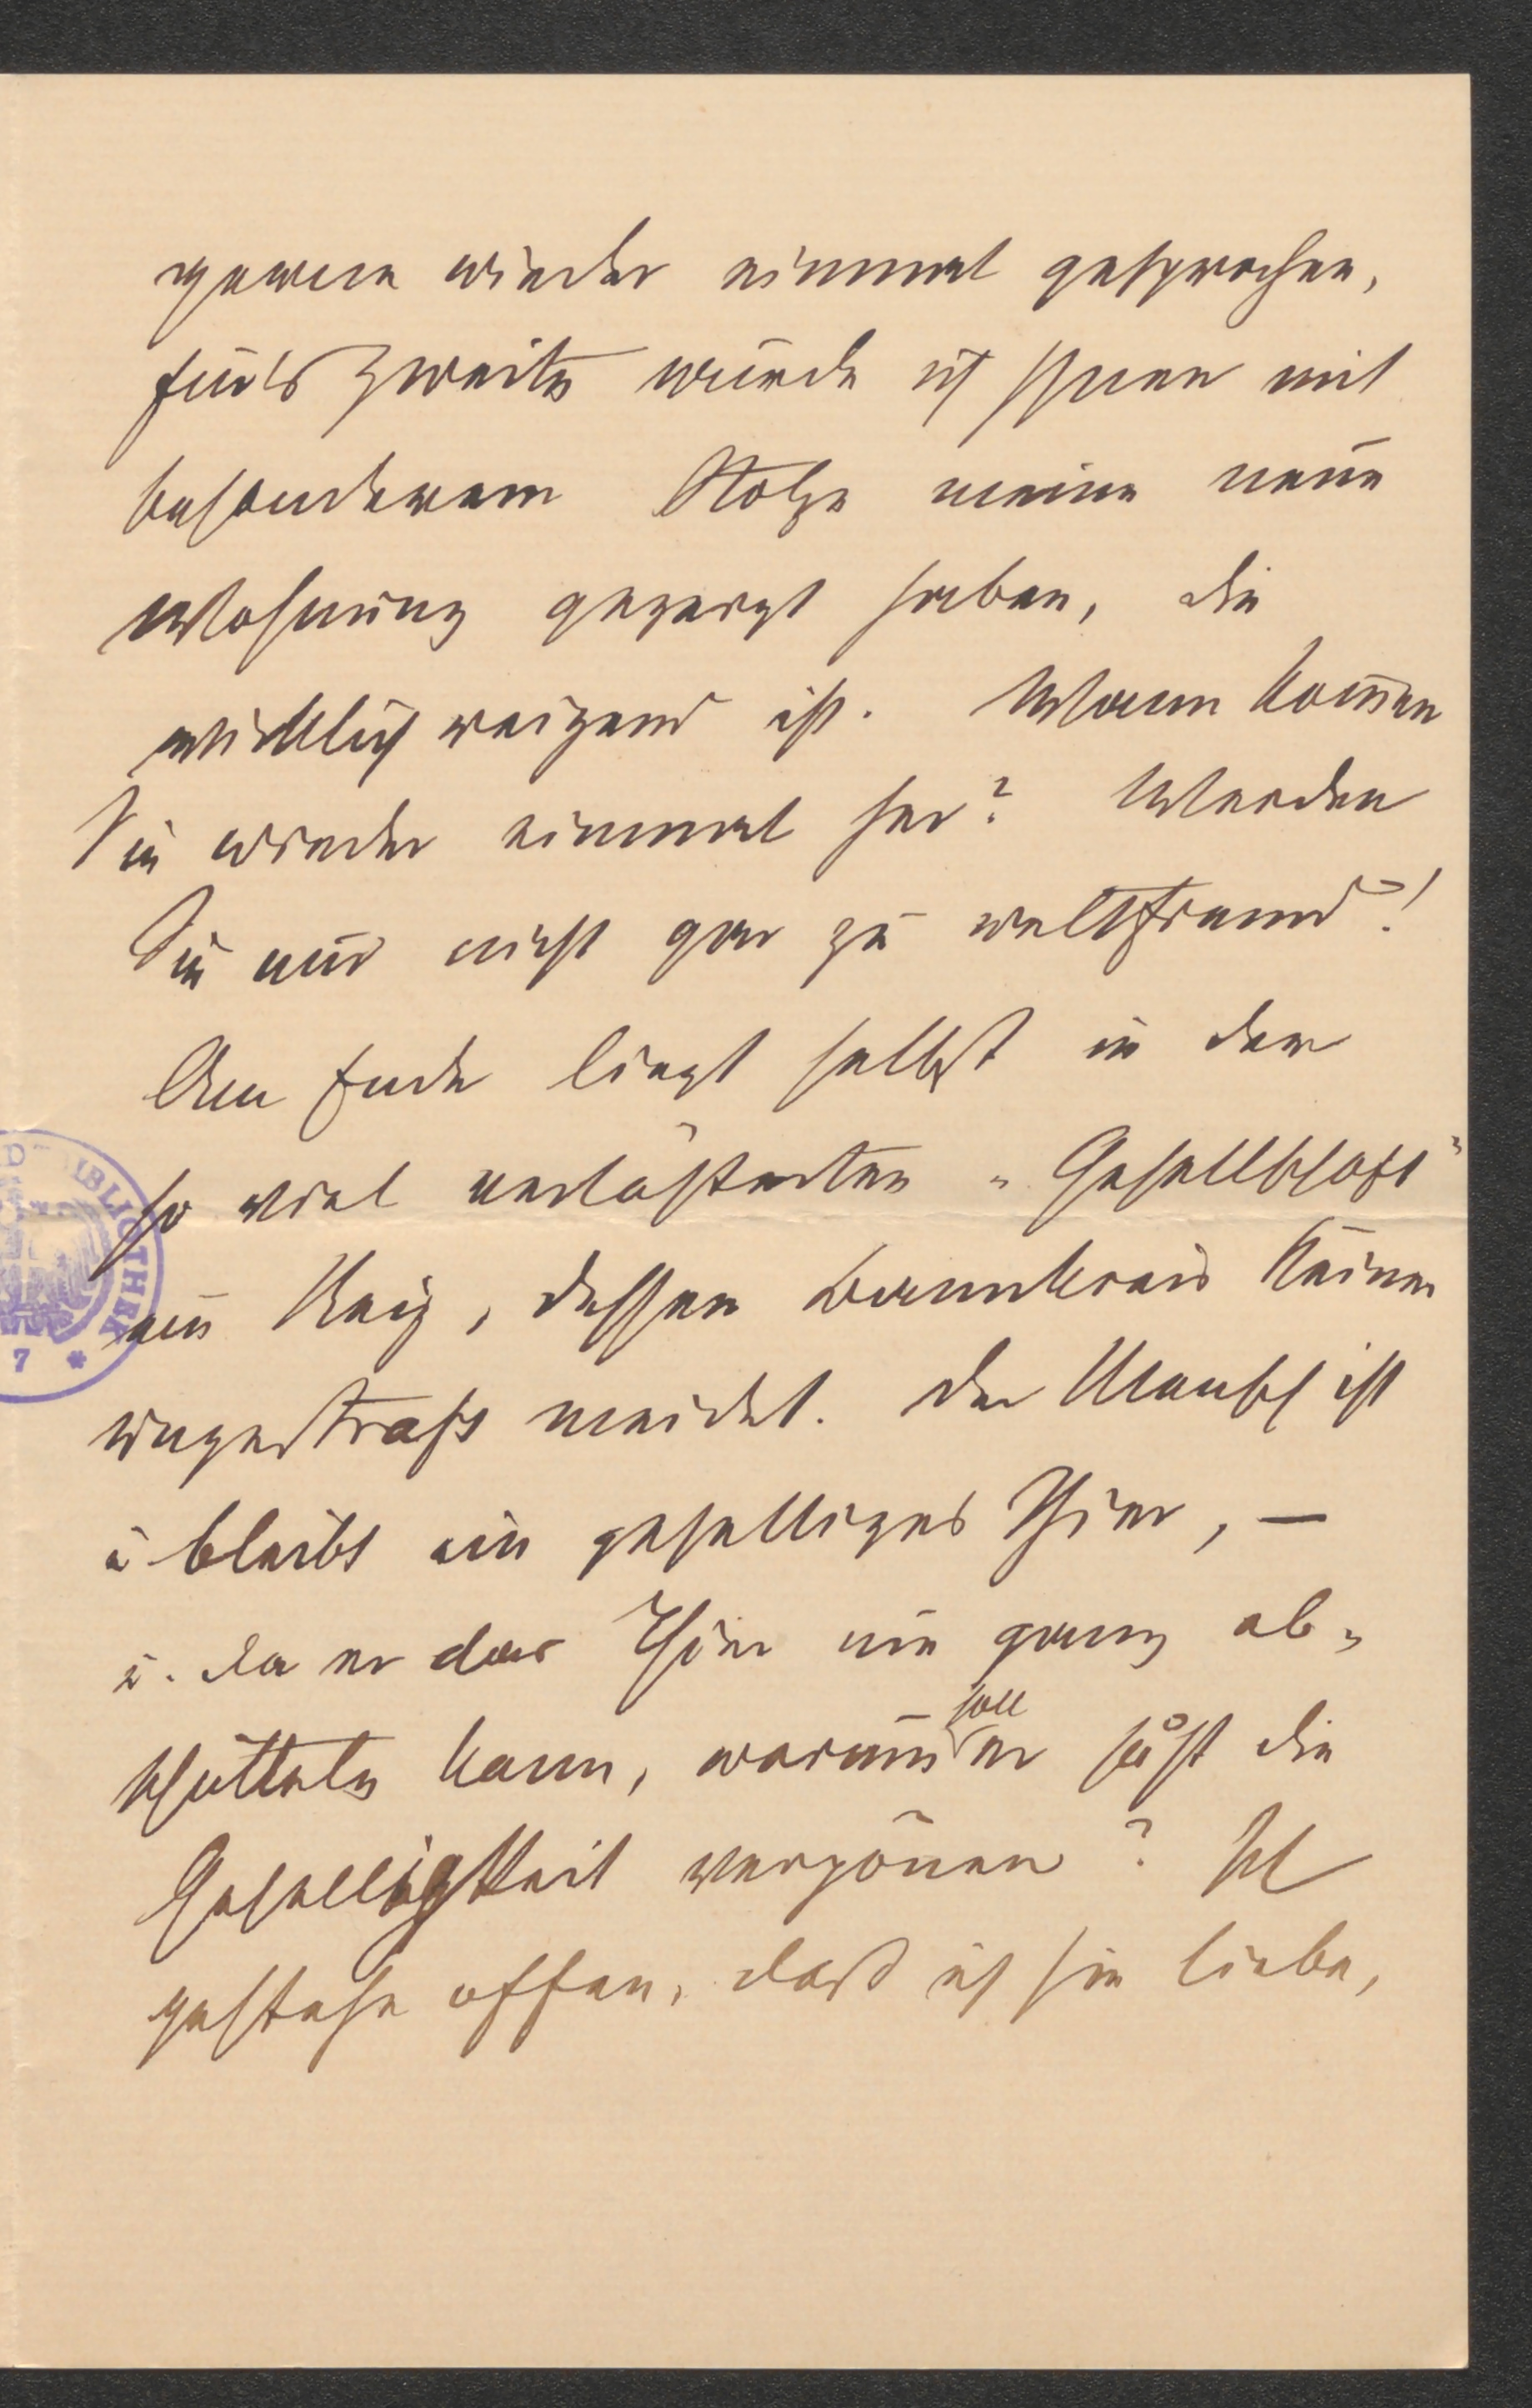 gerne wieder einmal gesprochen,
fürs Zweite würde ich Ihnen mit
besonderem Stolze meine neue
Wohnung gezeigt haben, die
wirklich reizend ist. Wann kom̅en
Sie wieder einmal her? Werden
Sie nur nicht gar zu weltfremd!
Am Ende liegt selbst in der
so viel verlästerten „Gesellschaft"
ein Reiz, dessen Bannkreis Keiner
ungestraft meidet. Der Mensch ist
u bleibt ein geselliges Thier, –
u. da er das Thier nie ganz ab-
schütteln kann, warum soll er just die
Geselligkeit verpönen? Ich
gestehe offen, daß ich sie liebe,
BIBLIOTHEK
7 *